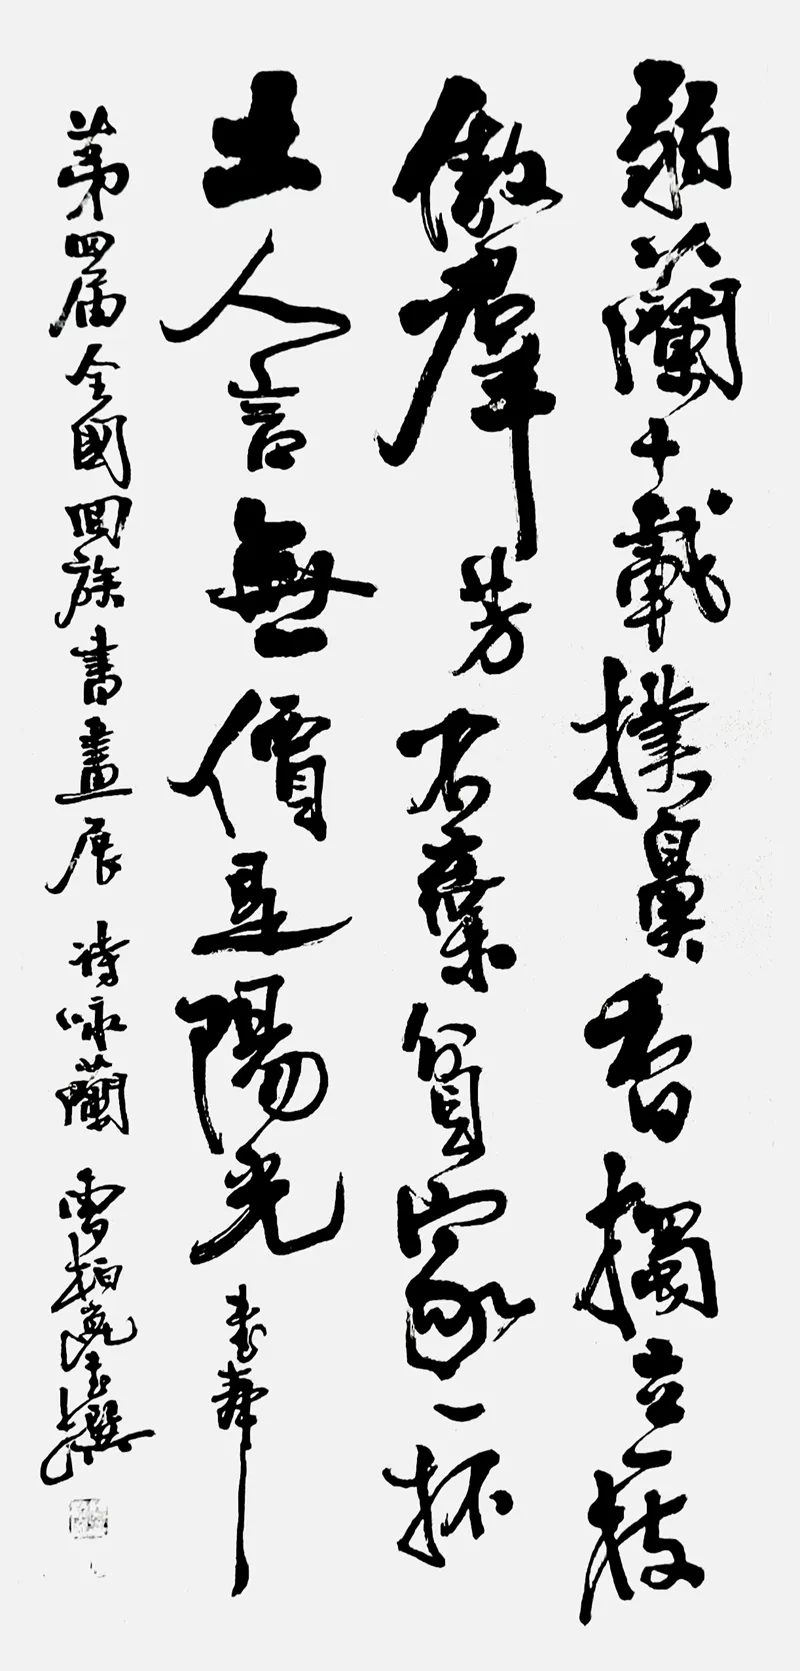 弱蘭十載撲鼻香獨立一枝
傲羣芳不棄貧家一抔
土人言無價是陽光 書奉
第四届全國回族書畫展 詩咏蘭 雪柏撰